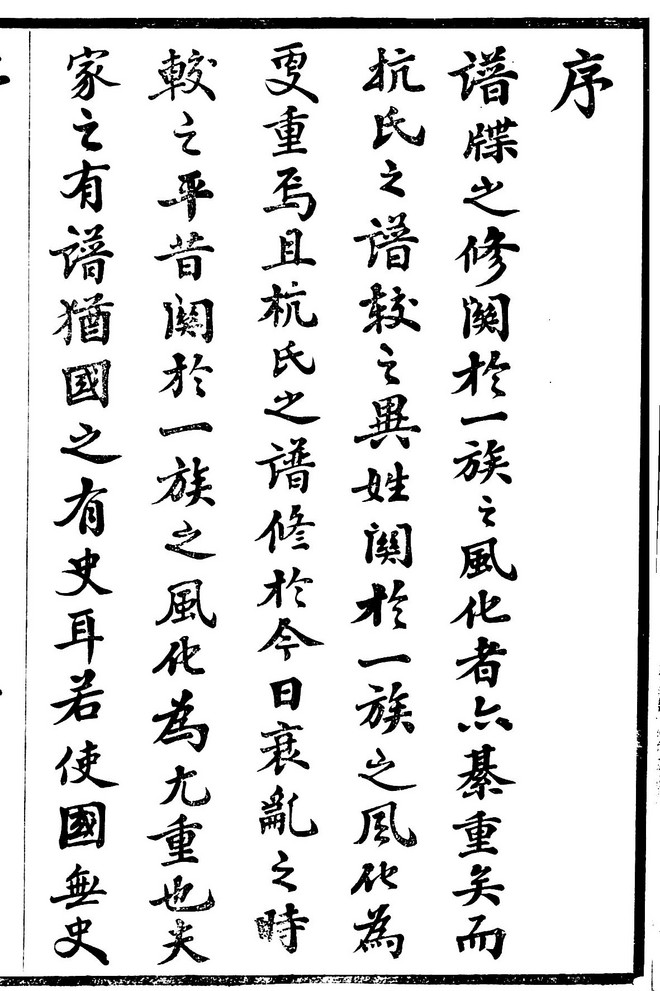 序
譜牒之修關於一族之風化者亦綦重矣而
杭氏之譜較之異姓關於一族之風化為
更重焉且杭氏之譜修於今日衰亂之時
較之平昔關於一族之風化為尤重也夫
家之有譜猶國之有史耳若使國無史